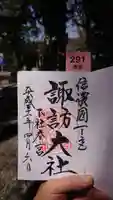 信濃國一之宮
諏訪大社
下社春宮
平成二十二年四月六日
291